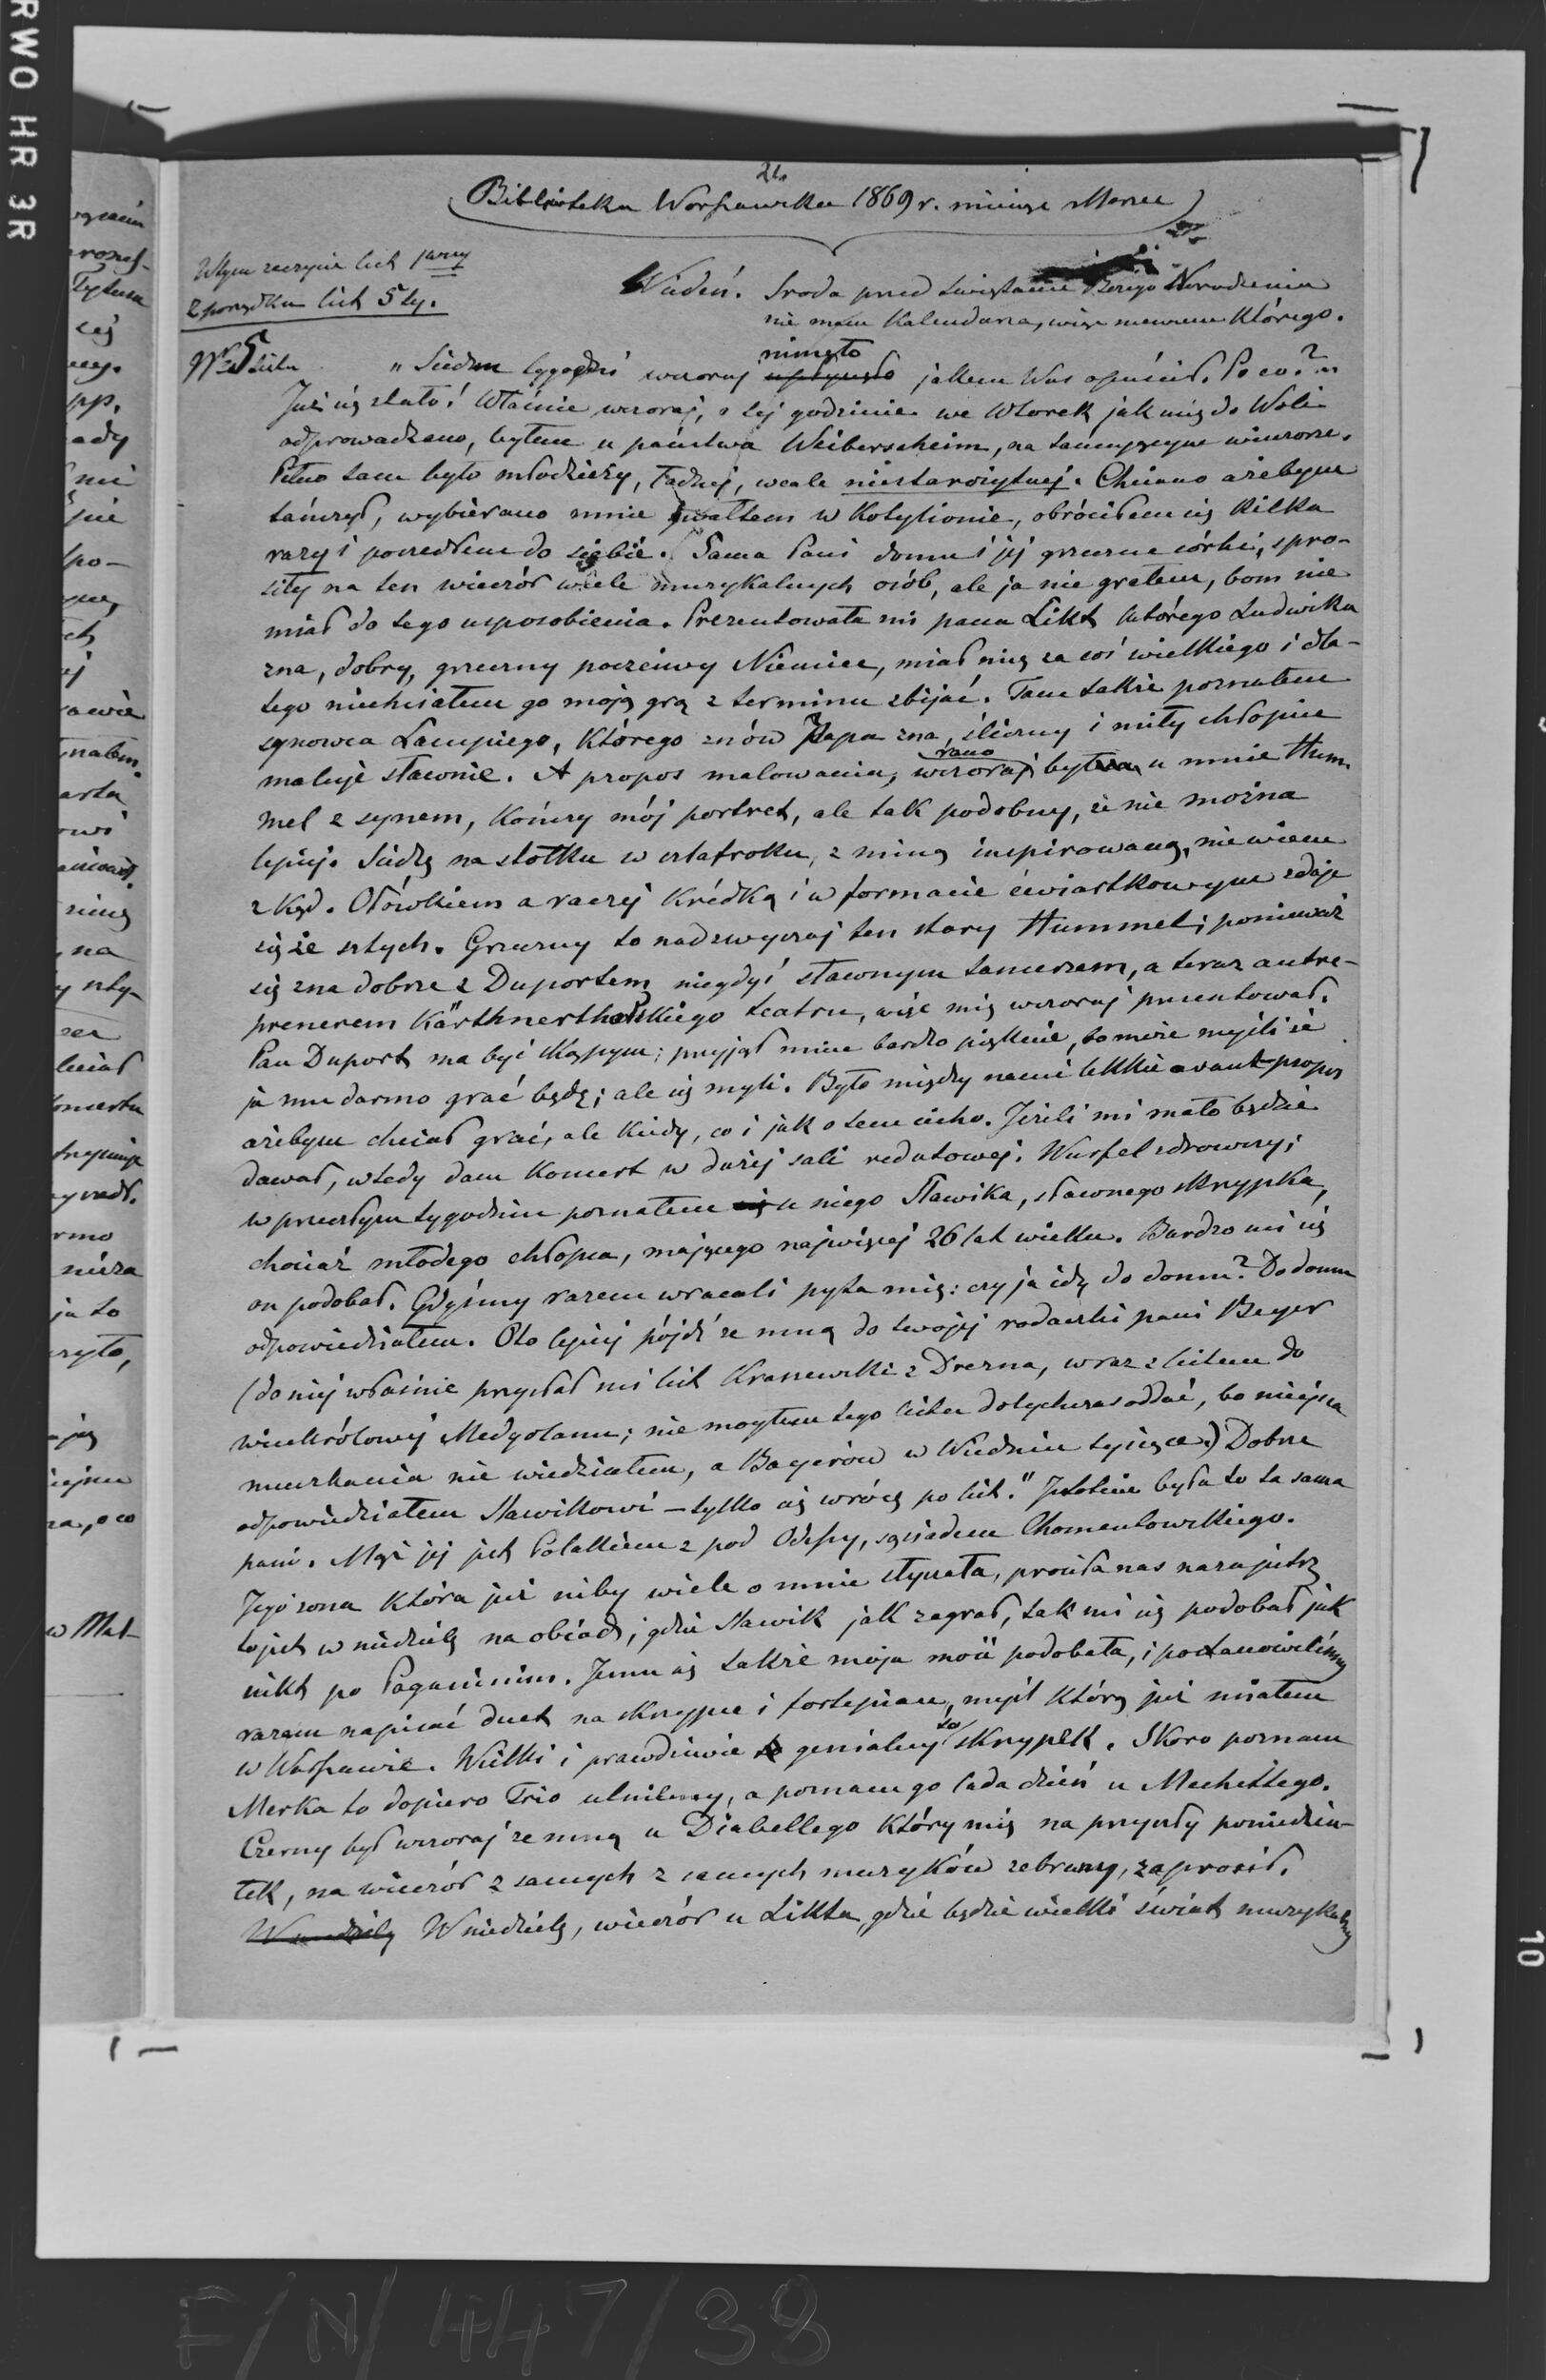 21.
(Biblioteka Warszawska 1869 r. miesiąc Marzec)
W tym zeszycie list 1wszy
z porządku list 5ty.
Wiedeń. Sroda przed Swiętami Bożego Narodzenia
nie mam Kalendarza, więc niewiem Którego.
Nr 5 listu „Siedem tygodni wczoraj upłynęło minęło jakem Was opuścił. Po co? ...
Już się stało! Właśnie wczoraj, o tej godzinie we Wtorek jak mię do Woli
odprowadzano, byłem u państwa Weiberscheim, na tańcującym wieczorze.
Pełno tam było młodzieży, ładnej, wcale niestarożytnej. Chciano ażebym
tańczył, wybierano mnie gwałtem w Kotylionie, obróciłem się Kilka
razy i poszedłem do siebie. Sama Pani domu i jej grzeczne córki, spro-
siły na ten wieczór wiele muzykalnych osób, ale ja nie grałem, bom nie
miał do tego usposobienia. Prezentowała mi pana Likl którego Ludwika
zna, dobry, grzeczny poczciwy Niemiec, miał mię za coś wielkiego i dla-
tego niechciałem go moją grą z terminu zbijać. Tam także poznałem
synowca Lampiego, Którego znów Papa zna, śliczny i miły chłopiec
maluje sławnie. A propos malowania, wczoraj rano był u mnie Hum-
mel z synem, Kończy mój portret, ale tak podobny, że nie można
lepiej. Siedzę na stołku w szlafroku, z miną inspirowaną, niewiem
z kąd. Ołówkiem a raczej Krédką i w formacie ćwiartkowym zdaje
się że sztych. Grzeczny to nadzwyczaj ten stary Hummel; ponieważ
się zna dobrze z Duportem niegdyś sławnym tancerzem, a teraz antre-
prenerem Kärthnerthorskiego teatru, więc mię wczoraj prezentował.
Pan Duport ma być skąpym; przyjął mnie bardzo pięknie, bo może myśli że
ja mu darmo grać będę; ale się myli. Było między nami lekkie avant-propos
ażebym chciał grać, ale Kiedy, co i jak o tem cicho. Jeżeli mi mało będzie
dawał, wtedy dam Koncert w dużej sali redutowej. Würfel zdrowszy;
w przeszłym tygodniu poznałem się u niego Sławika, sławnego skrzypka,
chociaż młodego chłopca, mającego najwięcej 26 lat wieku. Bardzo mi się
on podobał. Gdyśmy razem wracali pyta mię: czy ja idę do domu? Do domu
odpowiedziałem. Oto lepiej pójdź ze mną do twojej rodaczki pani Beyer
(do niej właśnie przysłał mi list Kraszewski z Drezna, wraz z listem do
wicekrólowej Medyolanu; nie mogłem tego listu dotychczas oddać, bo miejsca
mieszkania nie wiedziałem, a Bayerów w Wiedniu tysiące.) Dobrze
odpowiedziałem Sławikowi – tylko się wrócę po list." Istotnie była to ta sama
pani. Mąż jej jest Polakiem z pod Odessy, sąsiadem Chomentowskiego.
Jego żona Która już niby wiele o mnie słyszała, prosiła nas nazajutrz
to jest w niedzielę na obiad; gdzie Sławik jak zagrał, tak mi się podobał jak
nikt po Paganinim. Jemu się także moja mość podobała, i postanowiliśmy
razem napisać duet na skrzypce i fortepian, myśl Którą już miałem
w Warszawie. Wielki i prawdziwie to genialny to skrzypek. Skoro poznam
Merka to dopiero Trio utniemy, a poznam go lada dzień u Mechettego.
Czerny był wczoraj ze mną u Diabellego Który mię na przyszły poniedzia-
łek, na wieczór z samych z samych muzyków zebrany, zaprosił.
W niedzielę W niedzielę, wieczór u Likla, gdzie będzie wielki świat muzykalny
w Mal-
F/N/447/38
RWO HR 3R
10